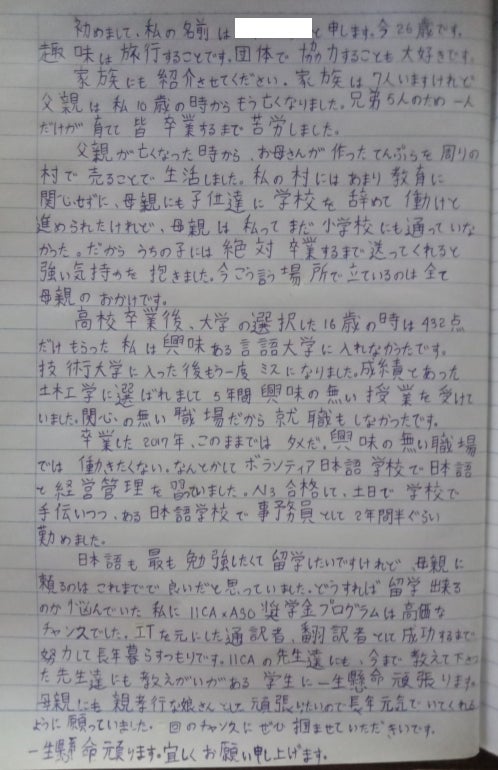 初めまして、私の名前は と申します。今26歳です。
趣味は旅行することです。団体で協力することも大好きです。
家族にも紹介させてください。家族は7人いますけれど
父親は私10歳の時からもう亡くなりました。兄弟5人のため一人
だけが育てて皆卒業するまで苦労しました。
父親が亡くなった時から、お母さんが作ったてんぷらを周りの
村で売ることで生活しました。私の村にはあまり教育に
関心せずに、母親にも子位達に学校を辞めて働けと
進められたけれど、母親は私ってまだ小学校にも通っていな
かった。だからうちの子には絶対卒業するまで送ってくれると
強い気持のを抱きました。今こう言う場所で立ているのは全て
母親のおかけです。
高校卒業後、大学の選択した16歳の時は432点
だけもらった私は興味ある言語大学に入れなかつたです。
技術大学に入った後もう一度ミスになりました。成績とあった
土木工学に選ばれまして5年間興味の無い授業を受けて
いました。関心の無い職場だから就職もしなかつたです。
卒業した2017年、このままではダメだ。興味の無い職場
では働きたくない。なんとかしてボランティア日本語学校で日本語
と経営管理を習っていました。N3合格して、土日で学校で
手伝いつつ、ある日本語学校で事務員として2年間半ぐらい
勤めました。
日本語も最も勉強したくて留学したいですけれど、母親に
頼るのはこれまでで良いだと思っていました。どうすれば留学出来る
のか悩んでいた私にIICA×ASO奨学金プログラムは高価な
チャンスでした。ITを元にした通訳者、翻訳者として成功するまで
努力して長年暮らすつもりです。IICAの先生達にも、今まで教えて下さつ
た先生達にも教えがいがある学生に一生懸命頑張ります。
母親にも親孝行な娘さんとして頑張りたいので長年元気でいてくれる
ように願っていました。一回のチャンスにぜひ掴ませていただきいです。
一生懸命頑ります。宜しくお願い申し上げます。